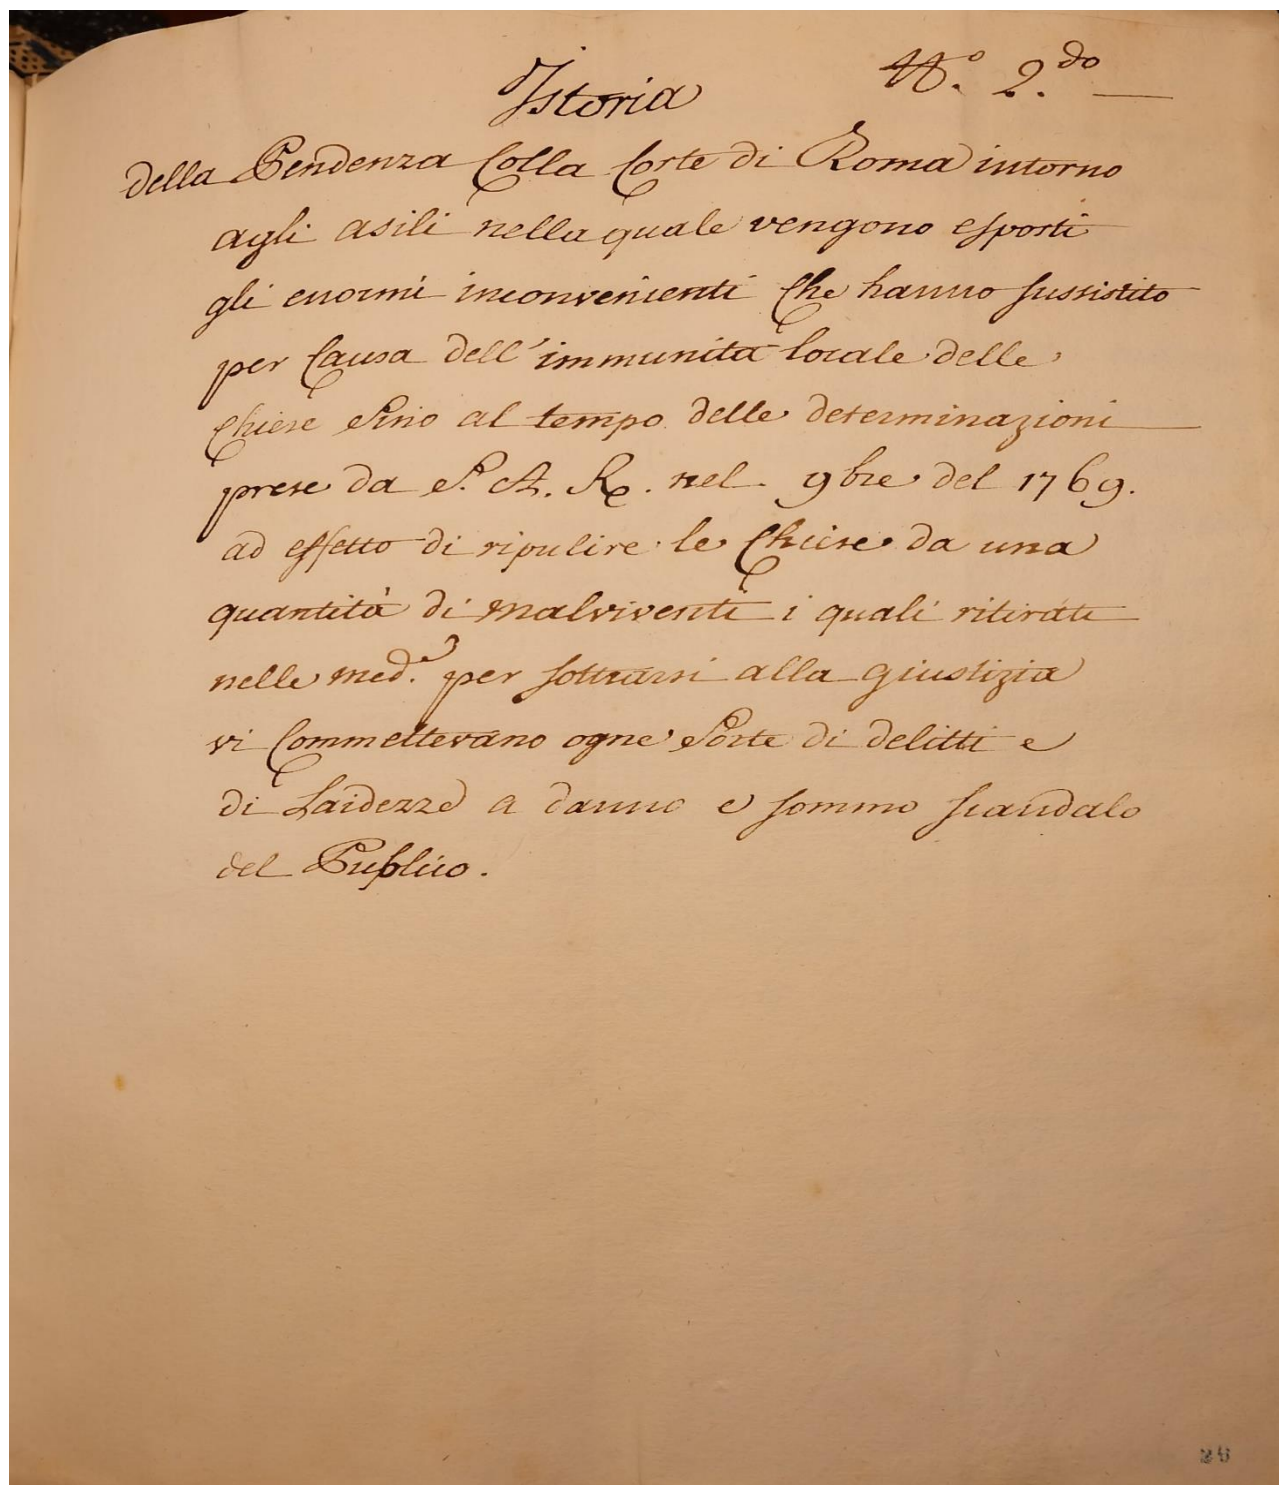 N.º 2.do
Istoria
della Pendenza Colla Corte di Roma intorno
agli asili nella quale vengono esposti
gli enormi inconvenienti Che hanno sussistito
per Causa dell'immunità locale delle
Chiese Sino al tempo delle determinazioni
prese da S. A. R. nel 9bre del 1769.
ad effetto di ripulire le Chiese da una
quantità di malviventi i quali ritirati
nelle med.e per sottrarsi alla giustizia
vi Commettevano ogne Sorte di delitti e
di Laidezze a danno e sommo scandalo
del Publico.
26